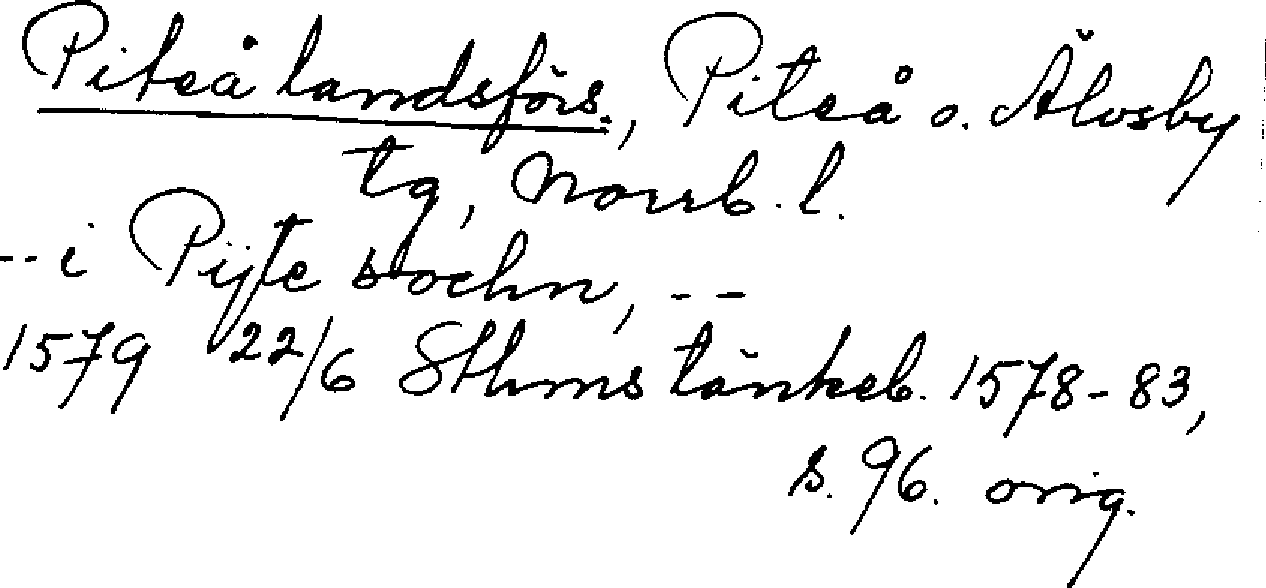 Piteå landsförs., Piteå o. Älvsby
tg, Norrb. l.
-- i Pijte sochn, --
1579 22/6 Sthms tänkeb. 1578-83,
s. 96. orig.